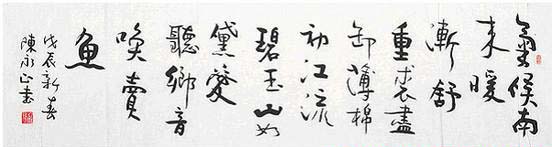 氣候南
来暖
漸舒
重裘盡
卸薄棉
初江流
碧玉山如
黛愛
聽鄉音
喚賣
魚
戊辰新春
陳永正書